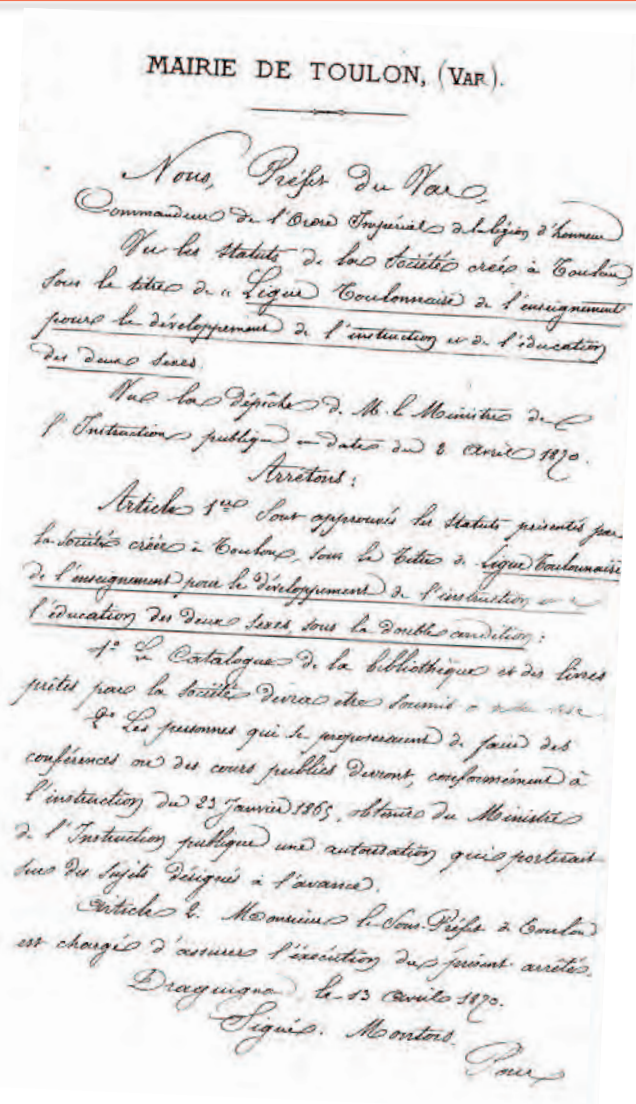 MAIRIE DE TOULON, (VAR).
Nous, Préfet du Var,
Commandeur de l'Ordre Impérial de la légion d'honneur
Vu les statuts de la Société créée à Toulon,
sous le titre de " Ligue Toulonnaise de l'enseignement
pour le développement de l'instruction et de l'éducation
des deux sexes.
Vu la dépêche de M. le Ministre de
l'Instruction publique en date du 2 avril 1870.
Arrêtons :
Article 1er Sont approuvés les statuts présentés par
la Société créée à Toulon, sous le titre de Ligue Toulonnaise
de l'enseignement pour le développement de l'instruction
l'éducation des deux sexes, sous la double condition :
1° Le Catalogue de la bibliothèque et des livres
prêtés par la Société devra être soumis à
2° Les personnes qui se proposeraient de faire des
conférences ou des cours publics devront, conformément à
l'instruction du 23 Janvier 1865, obtenir du Ministre
de l'Instruction publique une autorisation qui porterait
sur des sujets désignés à l'avance.
Article 2. Monsieur le Sous-Préfet de Toulon
est chargé d'assurer l'exécution du présent arrêté.
Draguignan, le 13 avril 1870.
Signé. Montois.
Pour